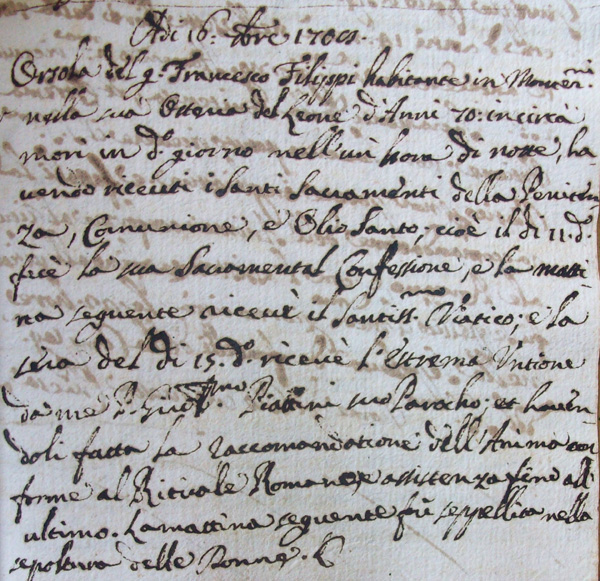 Adi 16: Xbre 1709.
Orsola del q. Francesco Filippi habitante in Mon
nella sua Osteria del Leone d'Anni 70: incircà
mori in d.º giorno nell'un hora di notte, ha
vendo riceuti i Santi Sacramenti della Peniten
za, Comunione, e Olio Santo; cioè il dì 11. d.º
fecè la sua Sacramental Confessione, e la matti
na seguente ricevè il Santiss.mo Viatico; e la
sera del di 15. d.º ricevè l'Estrema Untione
da me P. Piattini suo Parocho; et haven
doli fatta la raccomandatione dell'Anima con
forme al Rituale Romano, e assistenza fino all'
ultimo. La mattina seguente fù seppellita nella
sepoltura delle Donne.